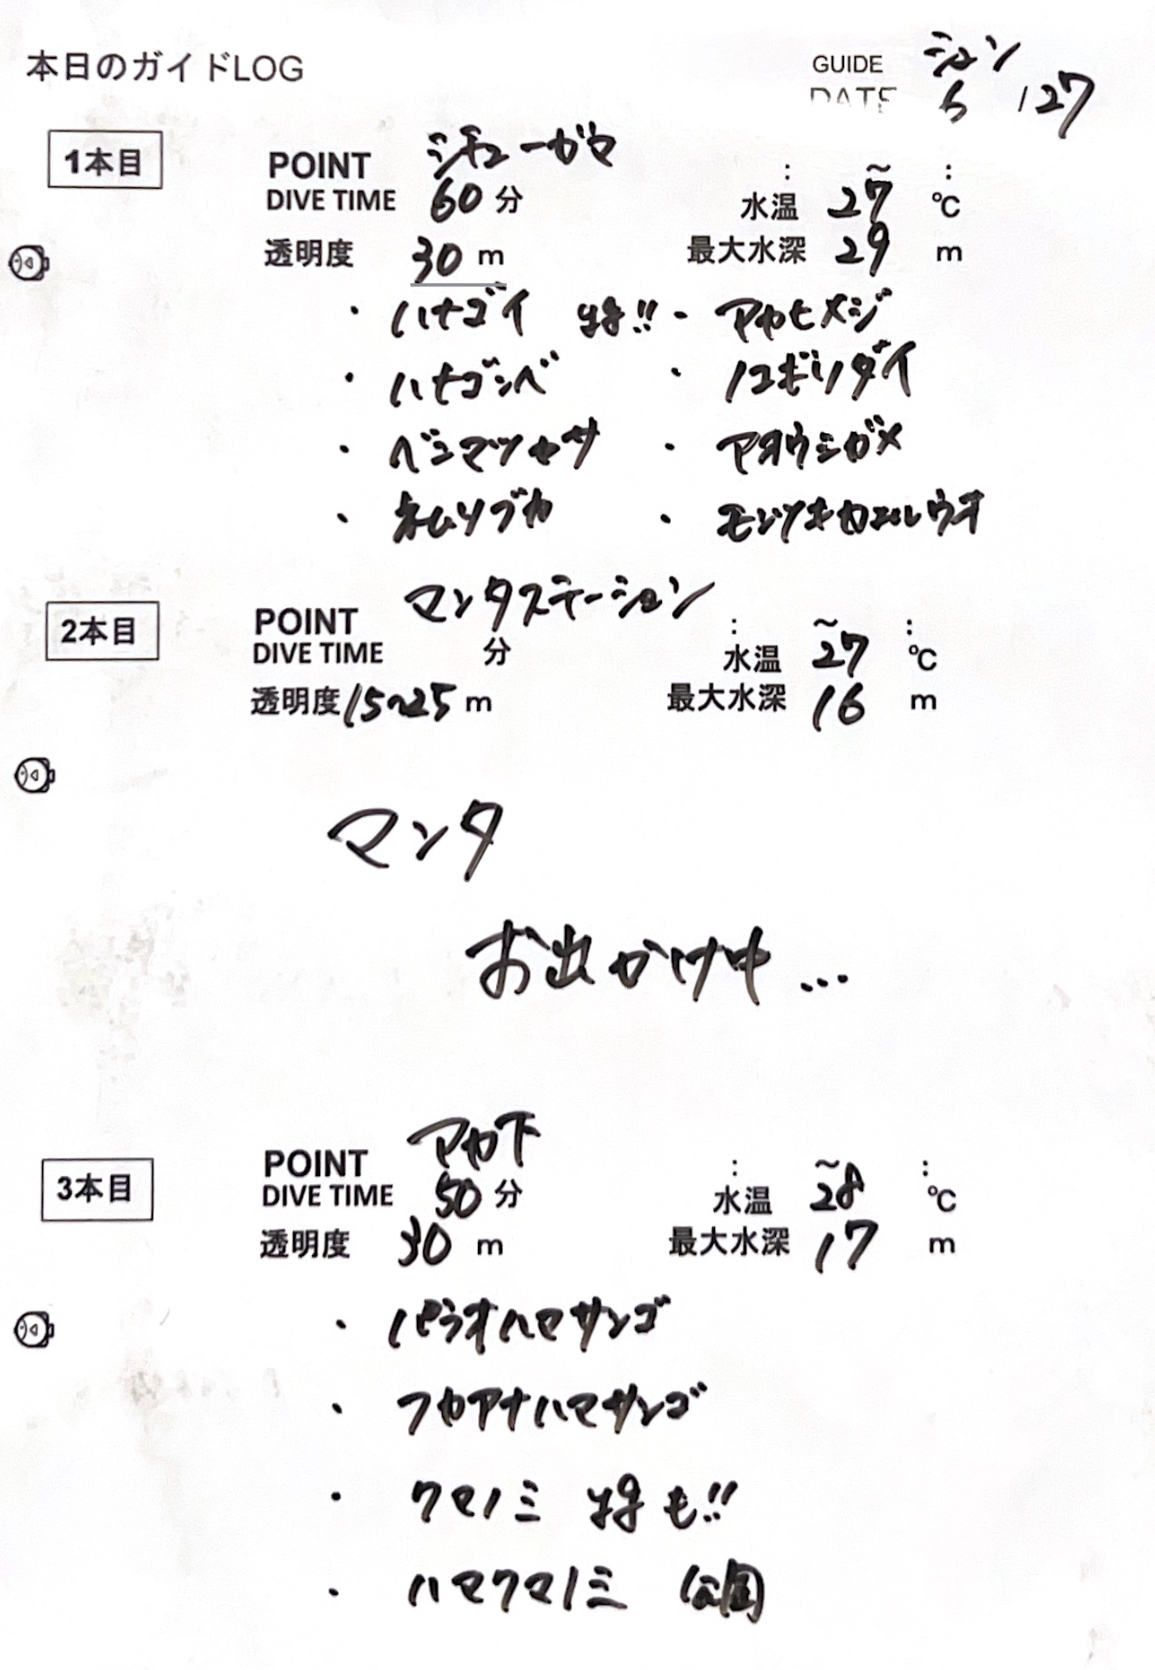 本日のガイドLOG
GUIDE ジュン
DATE 6/27
1本目
POINT シチューガマ : ~ :
DIVE TIME 60分 水温 27℃
透明度 30m 最大水深 29m
・ハナゴイ yg!! ・アカヒメジ
・ハナゴンベ ・ノコギリダイ
・ベニマツカサ ・アオウミガメ
・ネムリブカ ・モンツキカエルウオ
2本目
POINT マンタステーション : ~ :
DIVE TIME 分 水温 27℃
透明度 15~25m 最大水深 16m
マンタ
お出かけ中…
3本目
POINT アカ下 : ~ :
DIVE TIME 50分 水温 28℃
透明度 30m 最大水深 17m
・パラオハマサンゴ
・フカアナハマサンゴ
・クマノミ ygも!!
・ハマクマノミ 公園